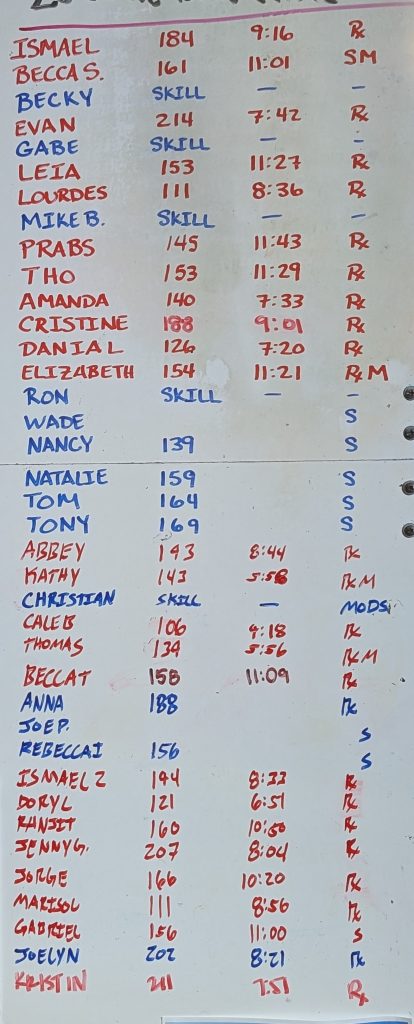 ISMAEL 184 9:16 Rx
BECCA S. 161 11:01 SM
BECKY SKILL — —
EVAN 214 7:42 Rx
GABE SKILL — —
LEIA 153 11:27 Rx
LOURDES 111 8:36 Rx
MIKE B. SKILL — —
PRABS 145 11:43 Rx
THO 153 11:29 Rx
AMANDA 140 7:33 Rx
CRISTINE 188 9:01 Rx
DANIAL 126 7:20 Rx
ELIZABETH 154 11:21 RxM
RON SKILL — —
WADE S
NANCY 139 S
NATALIE 159 S
TOM 164 S
TONY 169 S
ABBEY 143 8:44 Rx
KATHY 143 5:58 RxM
CHRISTIAN SKILL — MODS
CALEB 106 9:18 Rx
THOMAS 134 5:56 RxM
BECCA T 158 11:09 Rx
ANNA 188 Rx
JOE P. S
REBECCA I 156 S
ISMAEL 2 194 8:33 Rx
DORYL 121 6:51 Rx
RANJIT 160 10:50 Rx
JENNY G. 207 8:04 Rx
JORGE 166 10:20 Rx
MARISOL 111 8:56 Rx
GABRIEL 156 11:00 S
JOELYN 202 8:21 Rx
KRISTIN 211 7:51 Rx